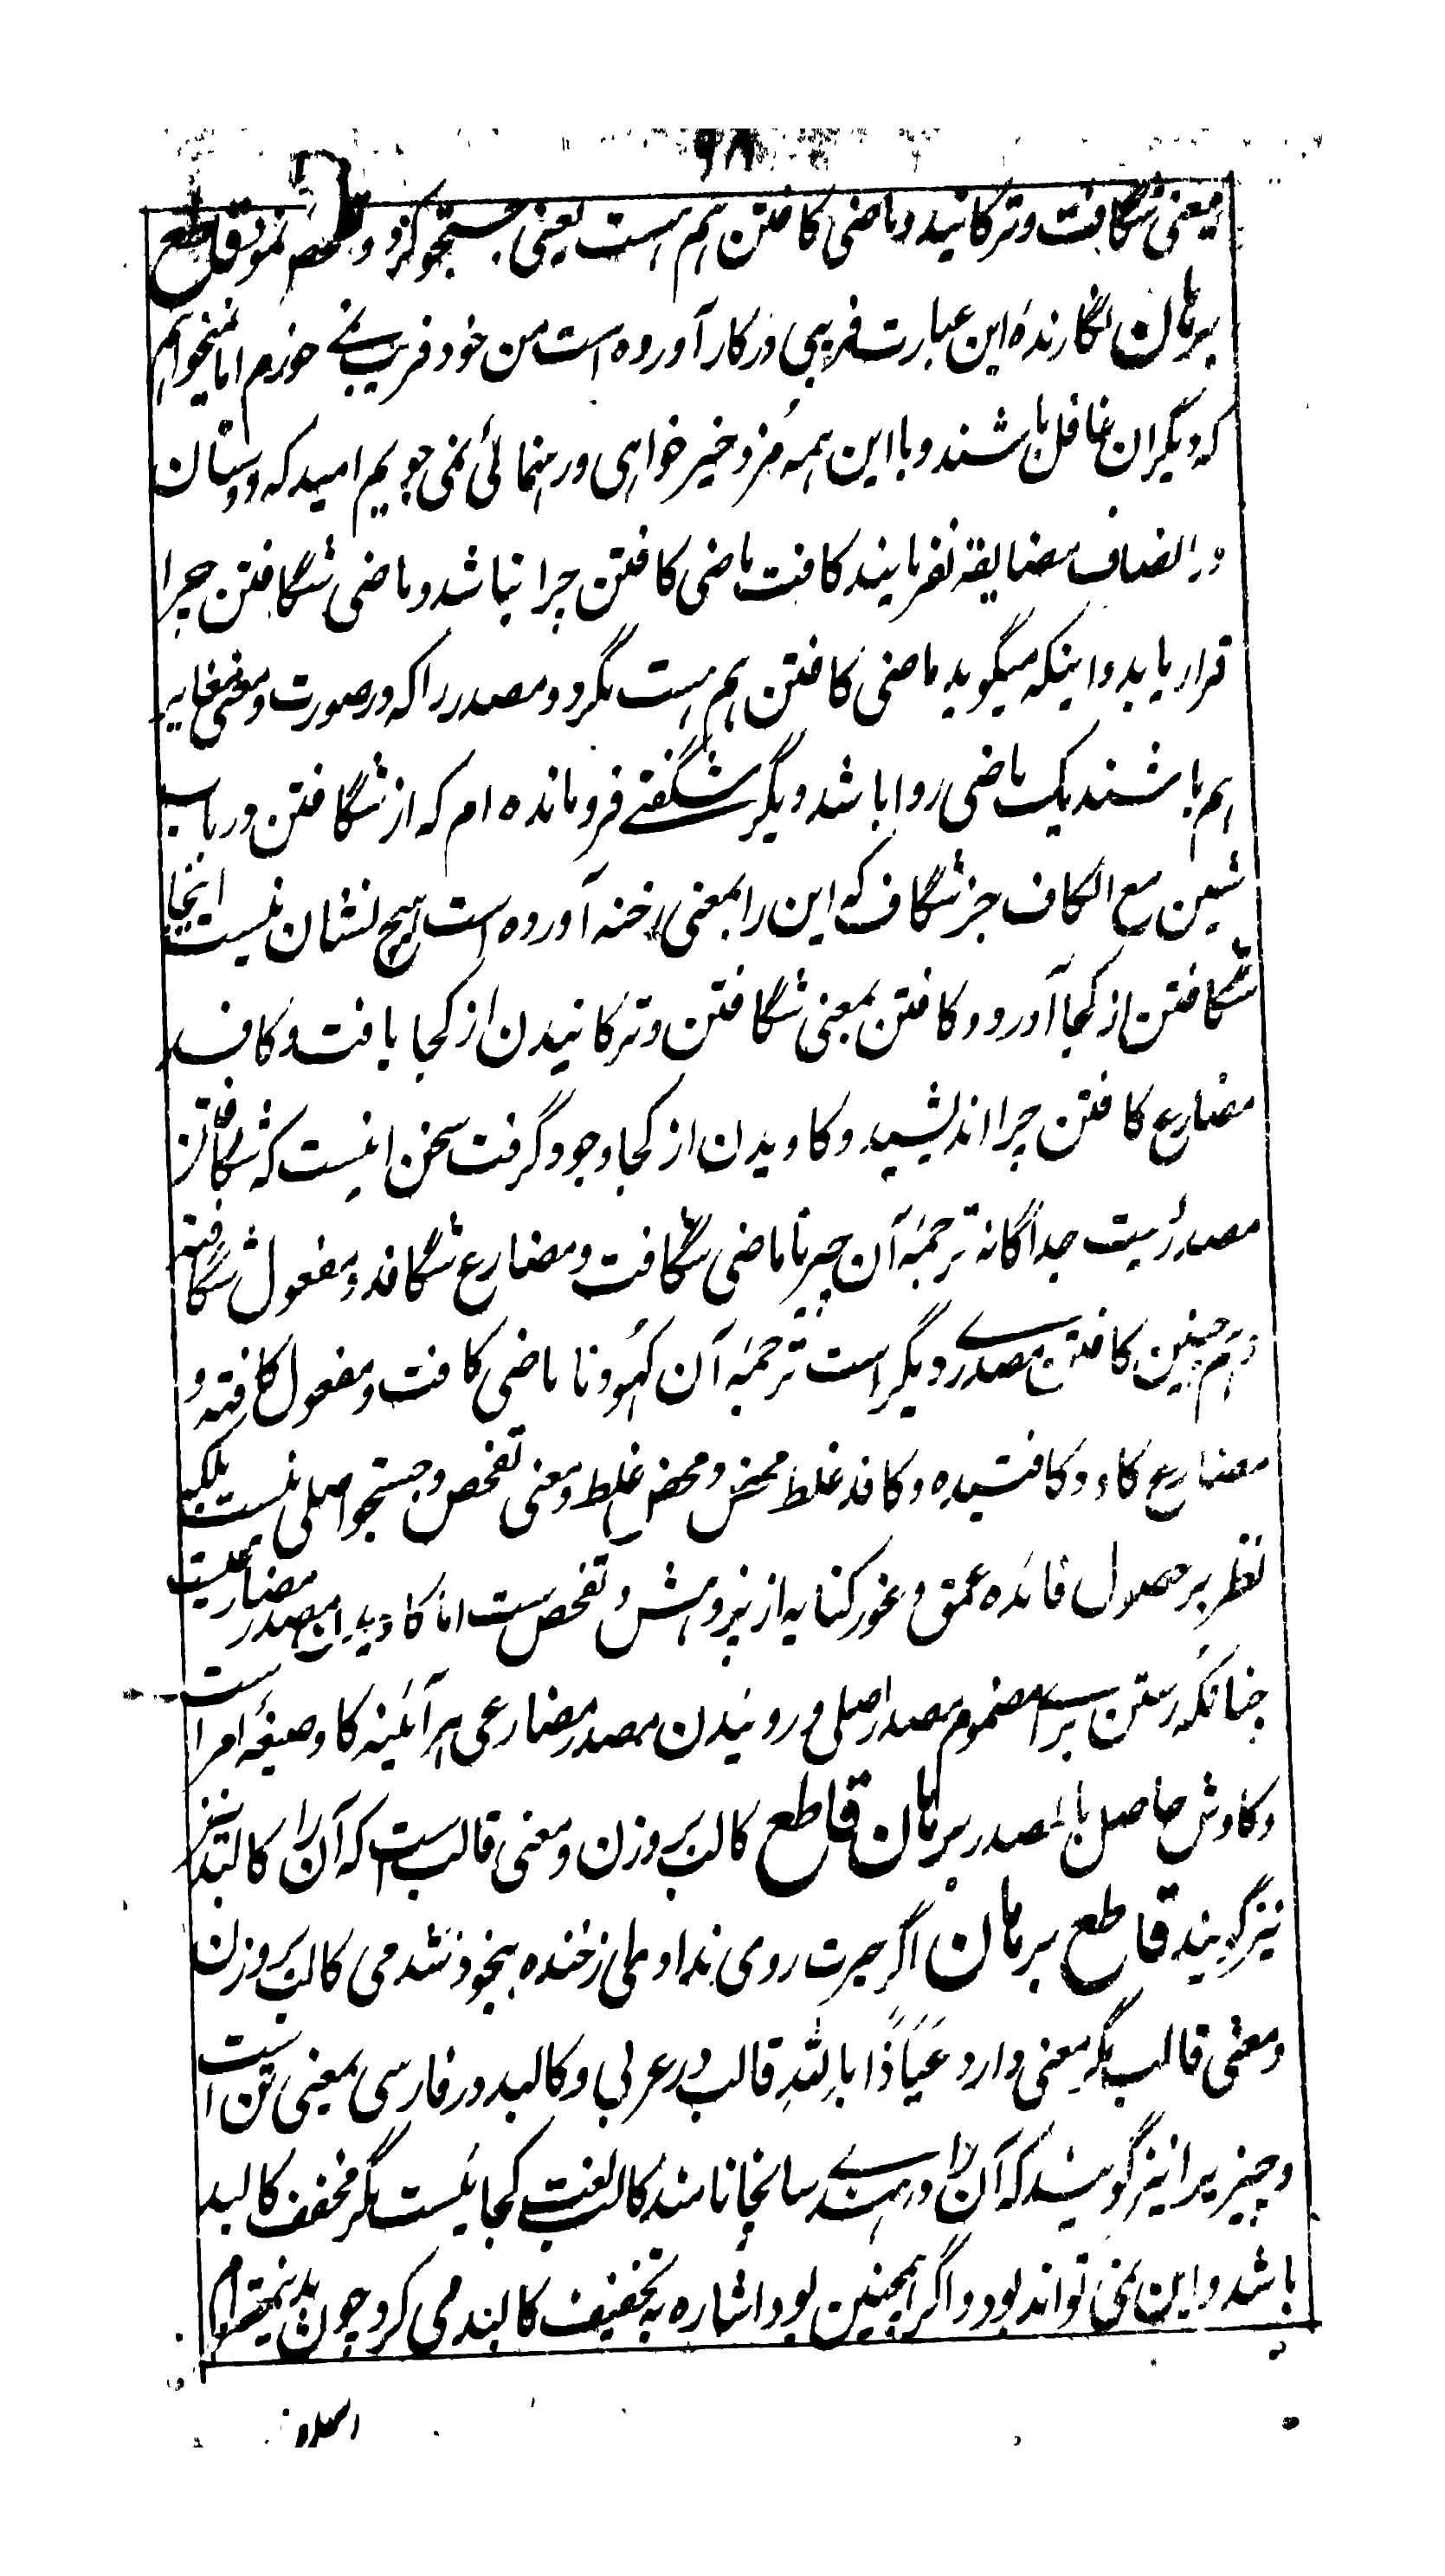 ۶۸
بمعنی شگافت و ترکانید و ماضی کافتن هم هست یعنی جستجو کرد و تفحص نمود قاطع
برهان نگارندهٔ این عبارت فریبی در کار آورده است من خود فریب نمے خورم اما نمیخواهم
که دیگران غافل باشند و با این همه مزد خیر خواهی و رهنمائی نمی جویم امید که دوستان
در انصاف مضایقه نفرمایند کافت ماضی کافتن چرا نباشد و ماضی شگافتن چرا
قرار یابد و اینکه میگوید ماضی کافتن هم هست مگر دو مصدر را که در صورت و معنی مغایر
هم باشند یک ماضی روا باشد دیگر شگفتے فرومانده ام که از شگافتن در باب
شین مع الکاف جز شگاف که این را بمعنی رخنه آورده است هیچ نشان نیست اینجا
شگافتن از کجا آورد و کافتن بمعنی شگافتن و ترکانیدن از کجا یافت و کافد
مضارع کافتن چرا اندیشید و کاویدن از کجا وجود گرفت سخن اینست که شگافتن
مصدریست جداگانه ترجمهٔ آن چیرنا ماضی شگافت و مضارع شگافد و مفعول شگافته
و هم چنین کافتن مصدرے دیگر است ترجمهٔ آن کهودنا ماضی کافت و مفعول کافته و
مضارع کاود و کافتیده و کافد غلط محض و محض غلط و معنی تفحص و جستجو اصلی نیست بلکه
نظر بر حصول فائده عمق و غور کنایه از پژوهش و تفحص ست اما کاویدن مصدر مضارعیست
چنانکه رستن برای مضموم مصدر اصلی و روئیدن مصدر مضارعی هر آئینه کاو صیغهٔ امر است
و کاوش حاصل بالمصدر برهان قاطع کالب بر وزن و معنی قالب ست که آن را کالبد نیز
نیز گویند قاطع برهان اگر حیرت روی نداد ی از خنده بیخود شدمی کالب بر وزن
و معنی قالب مگر معنی دارد عَیَاذًا بِاللّٰهِ قالب در عربی و کالبد در فارسی بمعنی تن است
و چیزیرا نیز گویند که آن را در هندے سانچا نامند کالب لغت کجا ئیست مگر مخفف کالبد
باشد و این نمی تواند بود و اگر همچنین بود اشاره به تخفیف کالبد می کرد چون بدینمقام